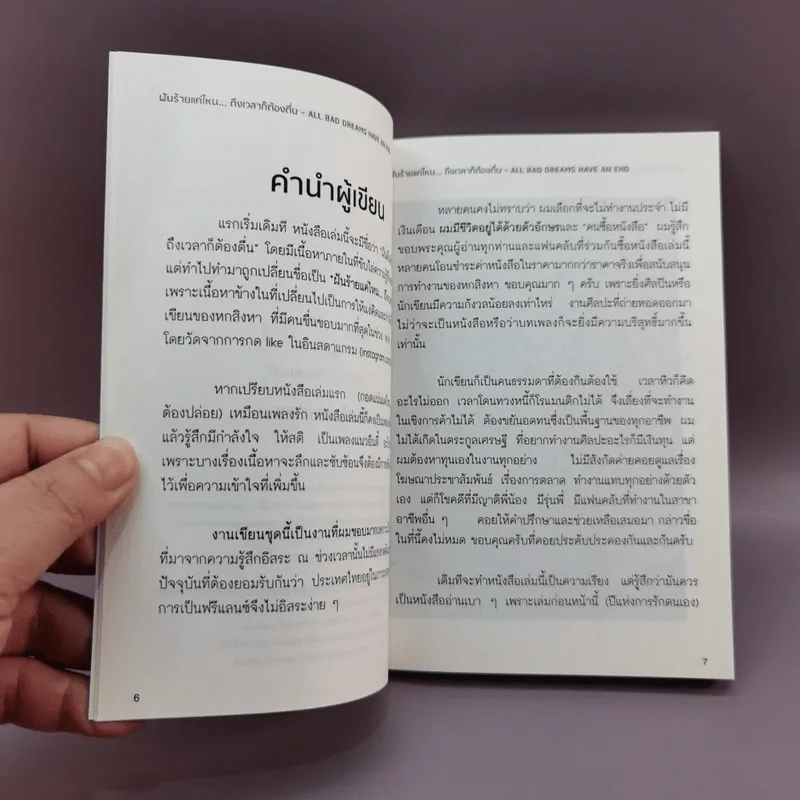 ฝันร้ายแค่ไหน... ถึงเวลาก็ต้องตื่น - ALL BAD DREAMS HAVE AN
คำนำผู้เขียน
แรกเริ่มเดิมที หนังสือเล่มนี้จะมีชื่อว่า
ถึงเวลาก็ต้องตื่น" โดยมีเนื้อหาภายในที่ขับ
แต่ทำไปทำมาถูกเปลี่ยนชื่อเป็น "ฝันร้ายแค่ไหน...
เพราะเนื้อหาข้างในที่เปลี่ยนไปเป็นการให้แง่คิด
เขียนของหกสิงหา ที่มีคนชื่นชอบมากที่สุดในช่วง
โดยวัดจากการกด like ในอินสตาแกรม (instagram
หากเปรียบหนังสือเล่มแรก
ต้องปล่อย) เหมือนเพลงรัก หนังสือเล่มนี้ก็คงเป็น
แล้วรู้สึกมีกำลังใจ ให้สติ เป็นเพลงแนวอินดี้
เพราะบางเรื่องเนื้อหาจะลึกและซับซ้อนจึงต้อง
ไว้เพื่อความเข้าใจที่เพิ่มขึ้น
งานเขียนชุดนี้เป็นงานที่ผมชอบมาก
ที่มาจากความรู้สึกอิสระ ณ ช่วงเวลานั้น
ปัจจุบันที่ต้องยอมรับกันว่า ประเทศไทยอยู่ใน
การเป็นฟรีแลนซ์จึงไม่อิสระง่าย ๆ
6
ฝันร้ายแค่ไหน... ถึงเวลาก็ต้องตื่น - ALL BAD DREAMS HAVE AN END
หลายคนคงไม่ทราบว่า ผมเลือกที่จะไม่ทำงานประจำ ไม่มี
เงินเดือน ผมมีชีวิตอยู่ได้ด้วยตัวอักษรและ "คนซื้อหนังสือ" ผมรู้สึก
ขอบพระคุณผู้อ่านทุกท่านและแฟนคลับที่ร่วมกันซื้อหนังสือเล่มนี้
หลายคนโอนชำระค่าหนังสือในราคามากกว่าราคาจริงเพื่อสนับสนุน
การทำงานของหกสิงหา ขอบคุณมาก ๆ ครับ เพราะยิ่งศิลปินหรือ
นักเขียนมีความกังวลน้อยลงเท่าไหร่ งานศิลปะที่ถ่ายทอดออกมา
ไม่ว่าจะเป็นหนังสือหรือว่าบทเพลงก็จะยิ่งมีความบริสุทธิ์มากขึ้น
เท่านั้น
นักเขียนก็เป็นคนธรรมดาที่ต้องกินต้องใช้ เวลาหิวก็คิด
อะไรไม่ออก เวลาโดนทวงหนี้ก็โรแมนติกไม่ได้ จึงเลี่ยงที่จะทำงาน
ในเชิงการค้าไม่ได้ ต้องขยันอดทนซึ่งเป็นพื้นฐานของทุกอาชีพ ผม
ไม่ได้เกิดในตระกูลเศรษฐี ที่อยากทำงานศิลปะอะไรก็มีเงินทุน แต่
ผมต้องหาทุนเองในงานทุกอย่าง ไม่มีสังกัดค่ายคอยดูแลเรื่อง
โฆษณาประชาสัมพันธ์ เรื่องการตลาด ทำงานแทบทุกอย่างด้วยตัว
เอง แต่ก็โชคดีที่มีญาติพี่น้อง มีรุ่นพี่ มีแฟนคลับที่ทำงานในสาขา
อาชีพอื่น ๆ คอยให้คำปรึกษาและช่วยเหลือเสมอมา กล่าวชื่อ
ในที่นี้คงไม่หมด ขอบคุณครับที่คอยประคับประคองกันและกันครับ
เดิมทีจะทำหนังสือเล่มนี้เป็นความเรียง แต่รู้สึกว่ามันควร
เป็นหนังสืออ่านเบา ๆ เพราะเล่มก่อนหน้านี้ (ปีแห่งการรักตนเอง)
7